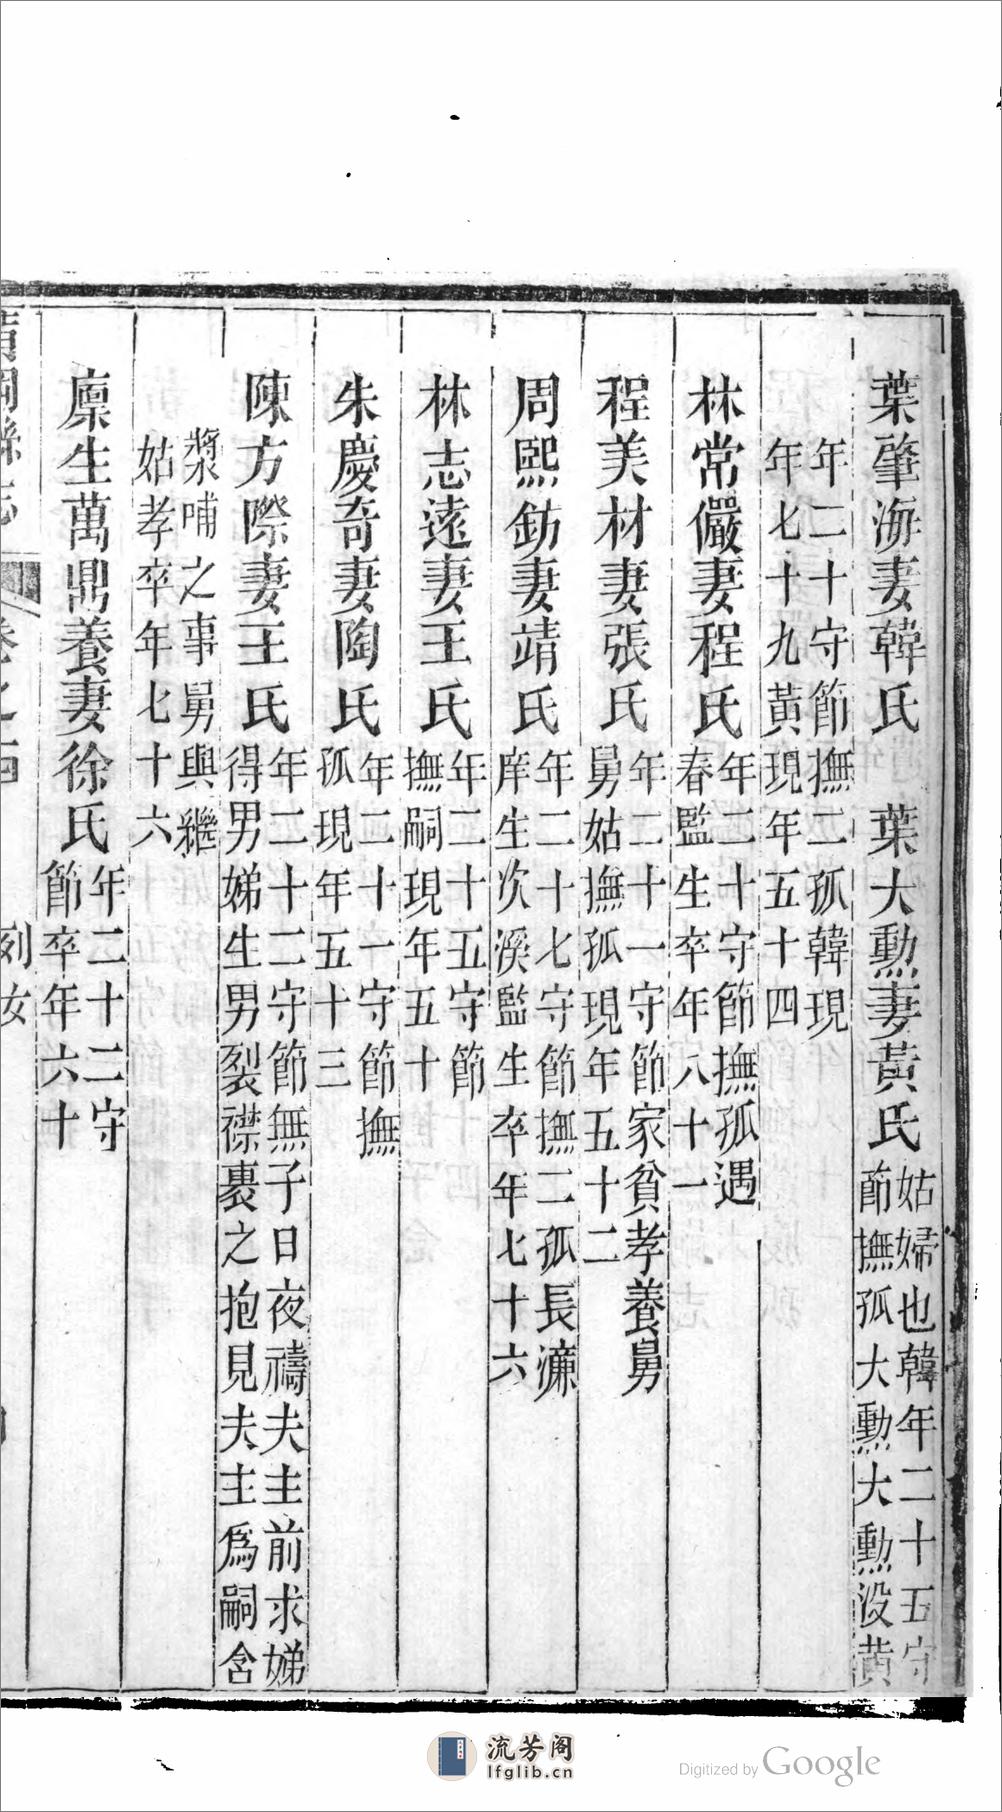 葉肇海妻韓氏　葉大勳妻黃氏
姑婦也韓年二十五守
節撫孤大勳大勳没黄
年二十守節撫二孤韓現
年七十九黃現年五十四
林常儼妻程氏
年二十守節撫孤遇
春監生卒年八十一
程美材妻張氏
年二十一守節家貧孝養舅
舅姑撫孤現年五十二
周熙鈁妻靖氏
年二十七守節撫二孤長濂
庠生次溪監生卒年七十六
林志遠妻王氏
年二十五守節
撫嗣現年五十
朱慶奇妻陶氏
年二十一守節撫
孤現年五十三
陳方際妻王氏
年二十二守節無子日夜禱夫主前求娣
得男娣生男裂襟裹之抱見夫主爲嗣含
漿哺之事舅與繼
姑孝卒年七十六
廪生萬鼎養妻徐氏
年二十二守
節卒年六十
黃岡縣志
卷之十四
列女
流芳阁
lfglib.cn
Digitized by Google